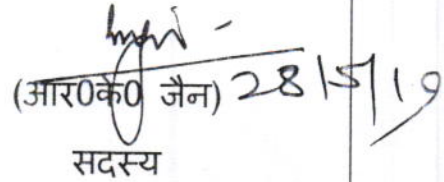 (आर0के0 जैन) 28/5/19
सदस्य